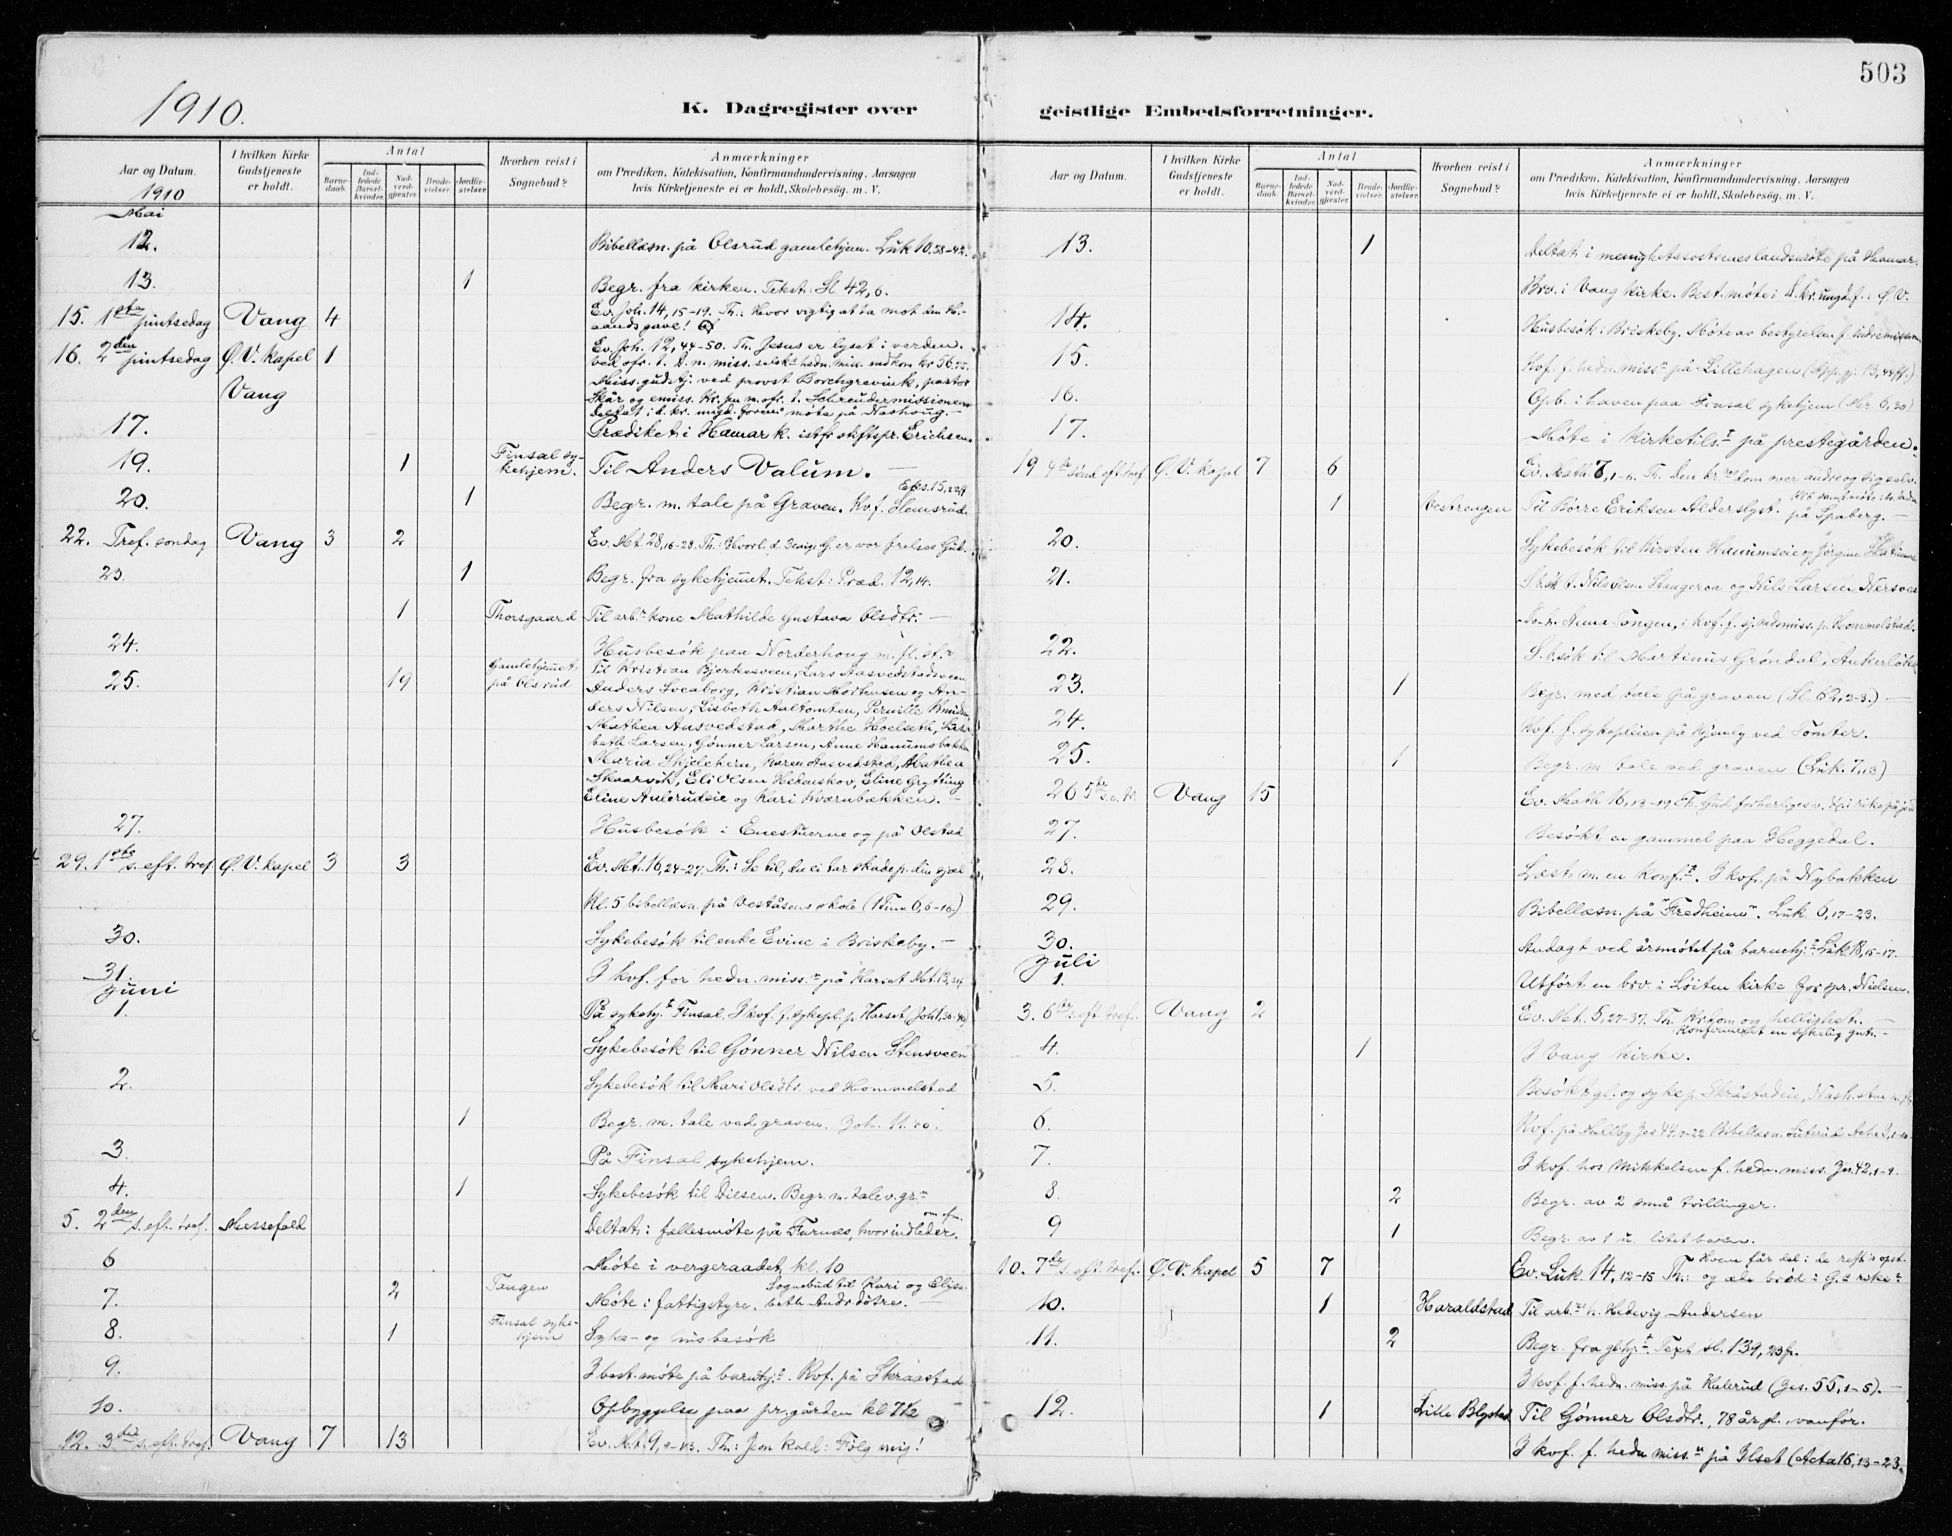 503
1910.
K. Dagregister over geistlige Embedsforretninger.
Aar og Datum.
I hvilken Kirke Gudstjeneste er holdt.
Antal
Barnedaab.
Indledede Barselkvinder.
Nadverdgjester.
Brudevielser.
Jordfæstelser.
Hvorhen reist i Sognebud?
Anmærkninger
om Prædiken, Katekisation, Konfirmandundervisning, Aarsagen
hvis Kirketjeneste ei er holdt, Skolebesøg. m. V.
1910
Mai
12. Bibellæsn. på Olsrud gamlehjem. Luk 10,38-42.
13. 1 Begr. fra kirken. Tekst: Sl. 42,6.
15. 1ste pintsedag Vang 4 Ev. Joh. 14, 15-19. Th.: Hvor vigtig at ta mot den H.
aands gave!
16. 2den pintsedag Ø. V. kapel 1 Ev. Joh. 12, 44-50. Th. Jesus er lyset i verden.
Vang Miss. gudstj. ved provst Borchgrevink, pastor
Skår og emiss.
17. Prædiket i Hamar k. istf. stiftspr. Erichsen.
19. 1 Finsal sykehjem. Til Anders Valum. —
20. 1 Begr. m. tale på Graven. Kvf. Hemsrud.
22. Tref. søndag Vang 3 2 Ev. Mt. 28,16-28. Th.:
23. 1 Begr. fra sykehjemmet. Tekst: Præd. 12,14.
1 Thorsgaard Til arb. kone Mathilde Gustava Olsdtr. —
24. Husbesøk paa Norderhoug m. fl. st.
25. 19 Gamlehjemmet på Olsrud Til Kristian Bjerkesveen, Lars Aasvedstadsveen
Anders Sveaborg, Kristian Mortensen og An-
ders Nilsen, Lisbeth Aaltomten, Pernille Knudsen,
Mathea Aasvedstad, Marthe Hoelseth, Lisa-
beth Larsen, Gønner Larsen, Anne Hanumsbakken
Maria Skjelehern, Karen Aasvedstad, Mathea
Skaarvik, Eli Olsen Hedenskov, Eline Grytting
Eline Anlerudeie og Kari Kværnbækken. —
27. Husbesøk i Enestuerne og på Olstad
29. 1ste s. eft. tref. Ø. V. kapel 3 3 Ev. Mt. 16, 24-27. Th.: Se til, du ei tar skade p. din sjæl
Kl. 5 bibellæsn. på Veståsens skole (1 Tim 6,6-16)
30. Sykebesøk til enke Evine i Briskeby. —
31. I kvf. for hedn. miss. på Harset Mt. 13,
Juni
1. På sykehj. Finsal. I kvf. f. sykepl. p. Harset
Sykebesøk til Gønner Nilsen Stensveen
2. Sykebesøk til Mari Olsdtr. ved Hommelstad
1 Begr. m. tale ved graven. Joh. 11.
3. På Finsal sykehjem.
4. 1 Sykebesøk til Dilsen. Begr. m. tale v. gr.
5. 2den s. eft. tref. Messefald Deltat i fællesmøte på Furnes, hvor indleder.
6 Møte i vergeraadet kl. 10
7. 2 Tangen Møte i fattigstyre. Sognebud til Kari og Elisa-
beth Andr. døtre.
8. 1 Finsal sykehjem Syke- og husbesøk
9. I best. møte på barnehj. Kvf. på Skraastad
10. Opbyggelse paa pr. gården kl 7 1/2
12. 3die s. eft. tref. Vang 7 13 Ev. Mt. 9, 9-13. Th.: Jesu kald: Følg mig!
Aar og Datum.
I hvilken Kirke Gudstjeneste er holdt.
Antal
Barnedaab.
Indledede Barselkvinder.
Nadverdgjester.
Brudevielser.
Jordfæstelser.
Hvorhen reist i Sognebud?
Anmærkninger
om Prædiken, Katekisation, Konfirmandundervisning, Aarsagen
hvis Kirketjeneste ei er holdt, Skolebesøg. m. V.
13. 1 Deltat i menighetssøstrenes landsmøte på Hamar.
Brv. i Vang kirke. Best. møte i d. kr. ungdf. i Ø. V.
14. Husbesøk i Briskeby. Møte av bestyrelsen f. indremissionen
15. Kvf. f. hedn. miss. på Lillehagen (Ap. gj. 13,44ff.)
16. Opb. i haven paa Finsal sykehjem
17. Møte i kirketils. på prestegården.
19 4de sønd. eft. tref. Ø. V. kapel 7 6 Ev. Math. Th. Den kr. dom over andre og sig selv.
1 Vestrengen Til Børre Eriksen Alderslyst. på Spaberg. —
20. Sykebesøk til Kirsten Hanumseie og Jørgine
21. S. bøk t. Nils Olsen Stangeroa og Nils Larsen
i kvf. f. sjømdsmiss. p. Hommelstad.
22. S. besøk til Martinus Grøndal, Ankerløkken
23. 1 Begr. med tale på graven —
24. Kvf. f. sykepleien på Hjemly ved Tomter.
25. 1 Begr. m. tale ved graven (Luk. 7,13)
26 5te s. e. tr. Vang 15 Ev. Math 16, 13-19
27. Besøkt en gammel paa Heggedal.
28. Læst. m. en konf. I kvf. på Nybakken
29. Bibellæsn. på "Fredheim". Luk. 6,17-23.
30. Andagt ved årsmøtet på barnehj. Luk. 18,15-17.
Juli
1. Utført en brv. i Løiten kirke for spr. Nielsen.
3. 6te s. eft. tref. Vang 2 Ev. Mt. 5, 27-37. Th. Kr. dom og hellighet. —
Konfirmeret en sykelig gut. —
4. 1 I Vang kirke.
5. Besøk t. gl. og syke p. Skråstadeie,
6. Kvf. på Hulleby Jes 44. Bibellæsn.
7. I kvf. hos Mikkelsen f. hedn. miss. Jes. 42,1-9.
8. 2 Begr. av 2 små tvillinger.
9 1 Begr. av 1 u. litet barn.
10. 7de s. eft. tref. Ø. V. kapel 5 7 Ev. Luk. 14, 12-15 Th: Hvem får del i de retf.s opst.
og æte brød i G.s rike?
10. 1 Haraldstad Til arb. h. Hedevig Andersen
11. 2 Begr. fra glhj. Text sl. 139, 23f.
I kvf. f. hedn. miss. på Hulerud (Jes. 55, 1-5). —
12. 1 Lille Blystad Til Gønner Olsdtr., 78 år g. vanfør.
I kvf. f. hedn. miss. på Ilset (Acta 16, 13-23.